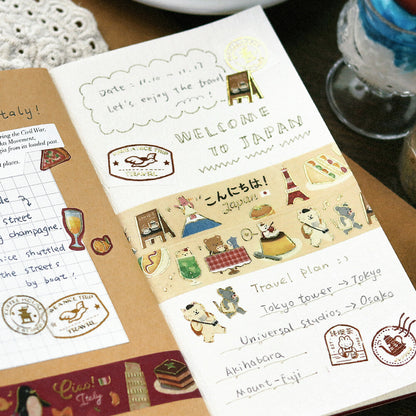 Italy!
ring the Civil War,
ha Movement,
gia from its loaded past.
l places.
street
champagne.
shuttled
the streets
by boat!
Ciao!
Italy
Date : 11.10 → 11.17
Let's enjoy the travel
WELCOME
TO JAPAN
HAVE A NICE TRIP
TRAVEL
こんにちは!
Japan
Travel plan : )
Tokyo tower → Tokyo
Universal studios → Osaka
Akihabara
Mount-Fuji
TRAVEL